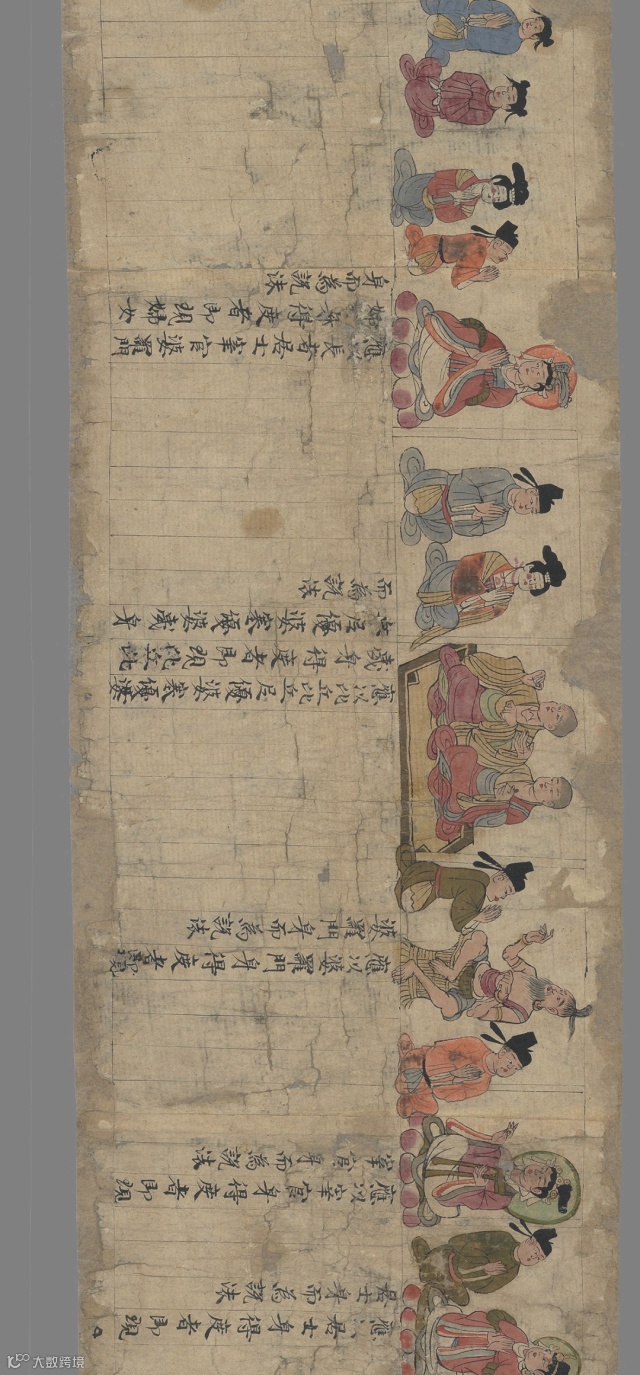 應以居士身得度者即現
居士身而為說法
應以宰官身得度者即現
宰官身而為說法
應以婆羅門身得度者即現
婆羅門身而為說法
應以比丘比丘尼優婆塞優婆
夷身得度者即現比丘比
丘尼優婆塞優婆夷身
而為說法
應以長者居士宰官婆羅門
婦身得度者即現婦女
身而為說法
大数跨境